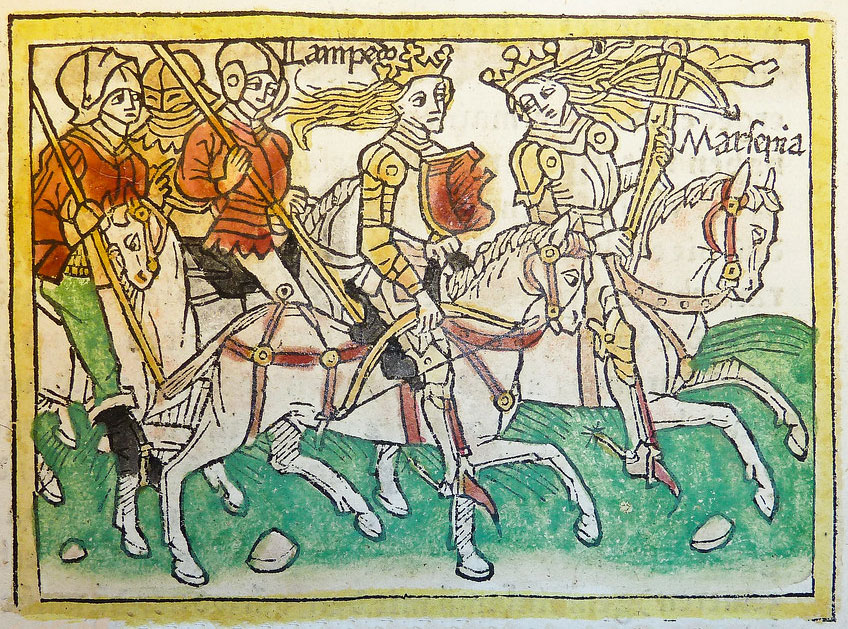 Lampedo
Marsepia